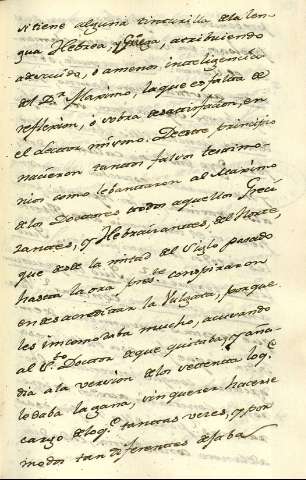 si tiene alguna tinturilla de la len-
gua Hebrea, y Griega, atribuiendo
a descuido, o a menos inteligencia
del D.r Maximo, la que es falta de
reflexion, o sobra de satisfaccion, en
el lector mismo. De este principio
nacieron tantos falsos testimo-
nios como lebantaron al Maximo
de los Doctores todos aquellos Greci-
zantes, y Hebraizantes, del Norte,
que desde la mitad del Siglo pasado
hasta la ora pres.te conspiraron
en desacreditar la Vulgata, porque
les incomodaba mucho, acusando
al S.to Doctor de que quitaba, y aña-
dia a la version de los Setenta lo q.e
le daba la gana, sin querer hacerse
cargo de lo q.e tantas veces, y por
modos tan diferentes dejaba